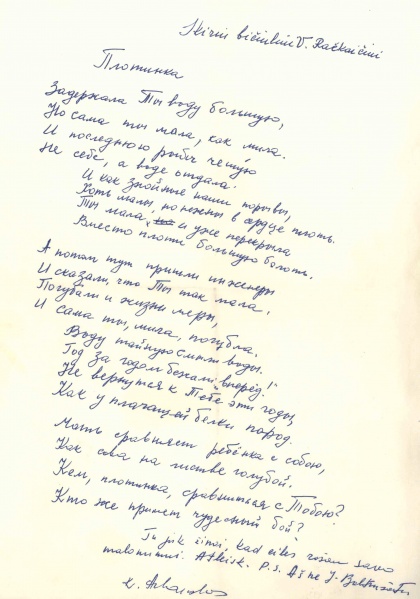 Skiriu bičiuliui V. Račkaičiui
Плотинка
Задержала Ты воду большую,
Но сама ты мала, как мига.
И последнюю рыбу чешую
Не себе, а воде отдала.
И как знойные наши порывы,
Хоть малы, но нежны в сердце плоть.
Ты мала, и уже перекрыла
Вместо плоти большую
А потом тут пришли инженеры
И сказали, что Ты так мала,
и жизни меры,
И сама ты, мига, погубла.
Воду тайную смыли воды.
Год за годом бежали „вперёд!"
Не вернутся к Тебе эти годы,
Как у плачущей белки пород.
Мать сравняет ребёнка с собою,
Как сва на листве голубой.
Кем, плотинка, сравниться с Тобою?
Кто же примет чудесный бой?
Tu juk žinai, kad eilės rašau savo
malonumui. Atleisk. P.S. Aš ne J.